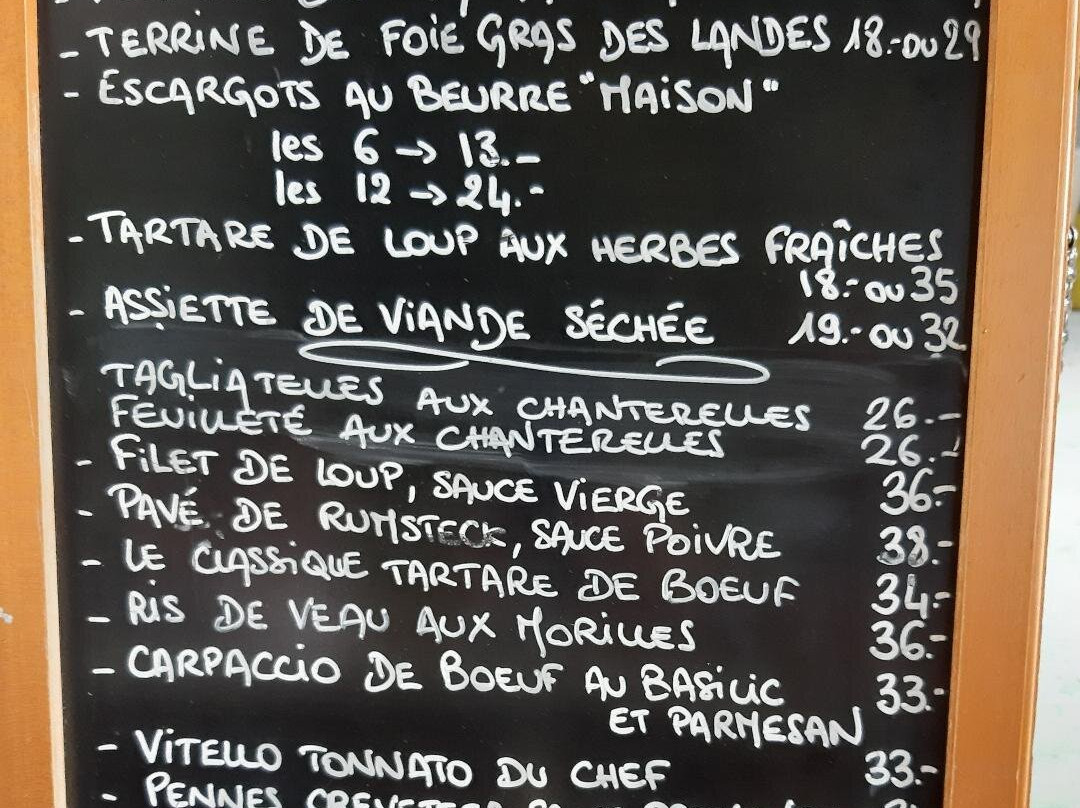 - TERRINE DE FOIE GRAS DES LANDES 18.- OU 29
- ESCARGOTS AU BEURRE "MAISON"
les 6 → 13.-
les 12 → 24.-
- TARTARE DE LOUP AUX HERBES FRAÎCHES
18.- OU 35
- ASSIETTE DE VIANDE SÉCHÉE 19.- OU 32
TAGLIATELLES AUX CHANTERELLES 26.-
FEUILLETÉ AUX CHANTERELLES 26.-
- FILET DE LOUP, SAUCE VIERGE 36.-
- PAVÉ DE RUMSTECK, SAUCE POIVRE 38.-
- LE CLASSIQUE TARTARE DE BOEUF 34.-
- RIS DE VEAU AUX MORILLES 36.-
- CARPACCIO DE BOEUF AU BASILIC 33.-
ET PARMESAN
- VITELLO TONNATO DU CHEF 33.-
- PENNES CREVETTES